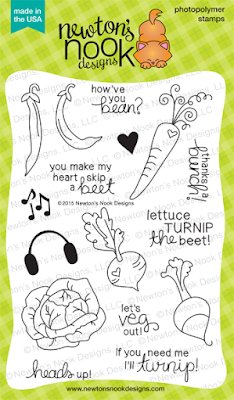 made in
the USA
newton's
nook
designs
photopolymer
stamps
how've
you
bean?
you make my
heart skip a
beet
thanks a
bunch!
©2015 Newton's Nook Designs
lettuce
TURNIP
the beet!
let's
veg
out!
heads up!
If you need me
I'll turnip!
www.newtonsnookdesigns.com